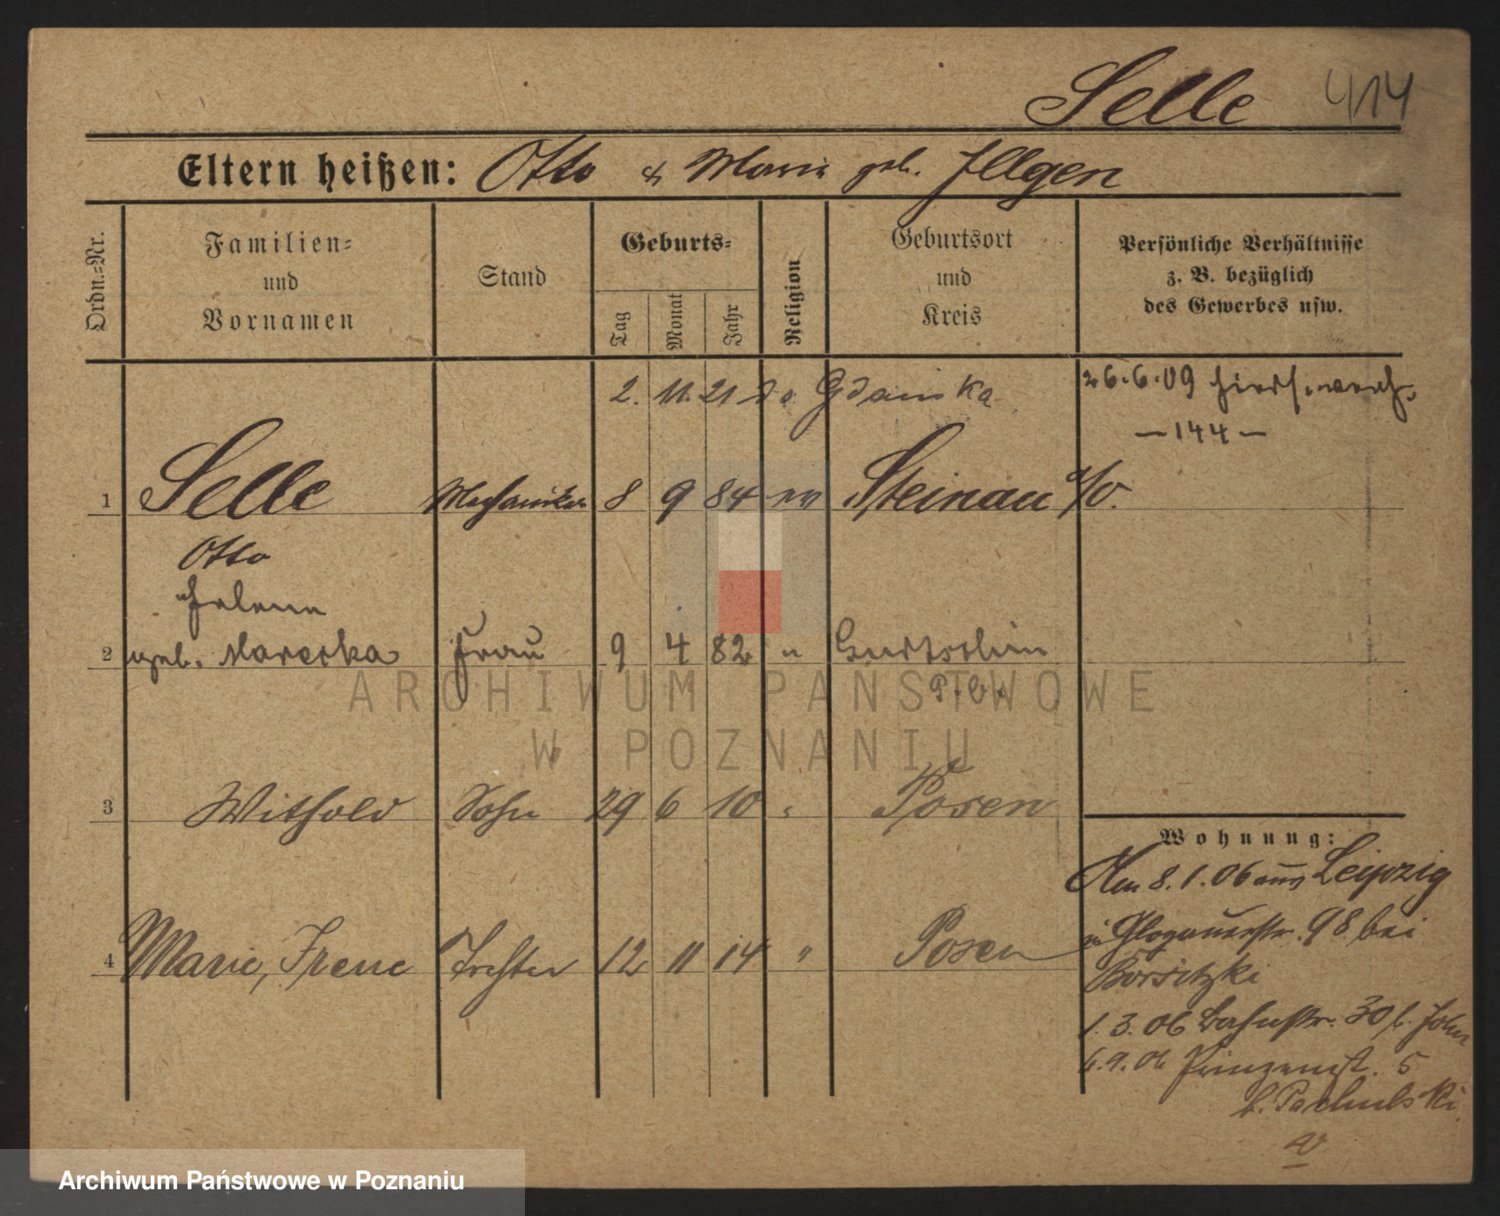 Selle 414
Eltern heißen: Otto & Marie geb. Illgen
Ordn.-Nr.
Familien-
und
Vornamen
Stand
Geburts-
Tag
Monat
Jahr
Religion
Geburtsort
und
Kreis
Persönliche Verhältnisse
z. B. bezüglich
des Gewerbes usw.
2. 11. 21 Gdańska
26.6.09
—144—
1 Selle Mechaniker 8 9 84 Steinau a/O.
Otto
Helene
2 geb. Marecka Frau 9 4 82 "
3 Withold Sohn 29 6 10 " Posen
4 Marie, Irene Tochter 12 11 14 " Posen
Wohnung:
8.1.06 aus Leipzig
Glogauerstr. 98 bei
1.3.06 Bahnstr. 30 b.
6.9.06 Prinzenst. 5
ARCHIWUM PAŃSTWOWE
W POZNANIU
Archiwum Państwowe w Poznaniu